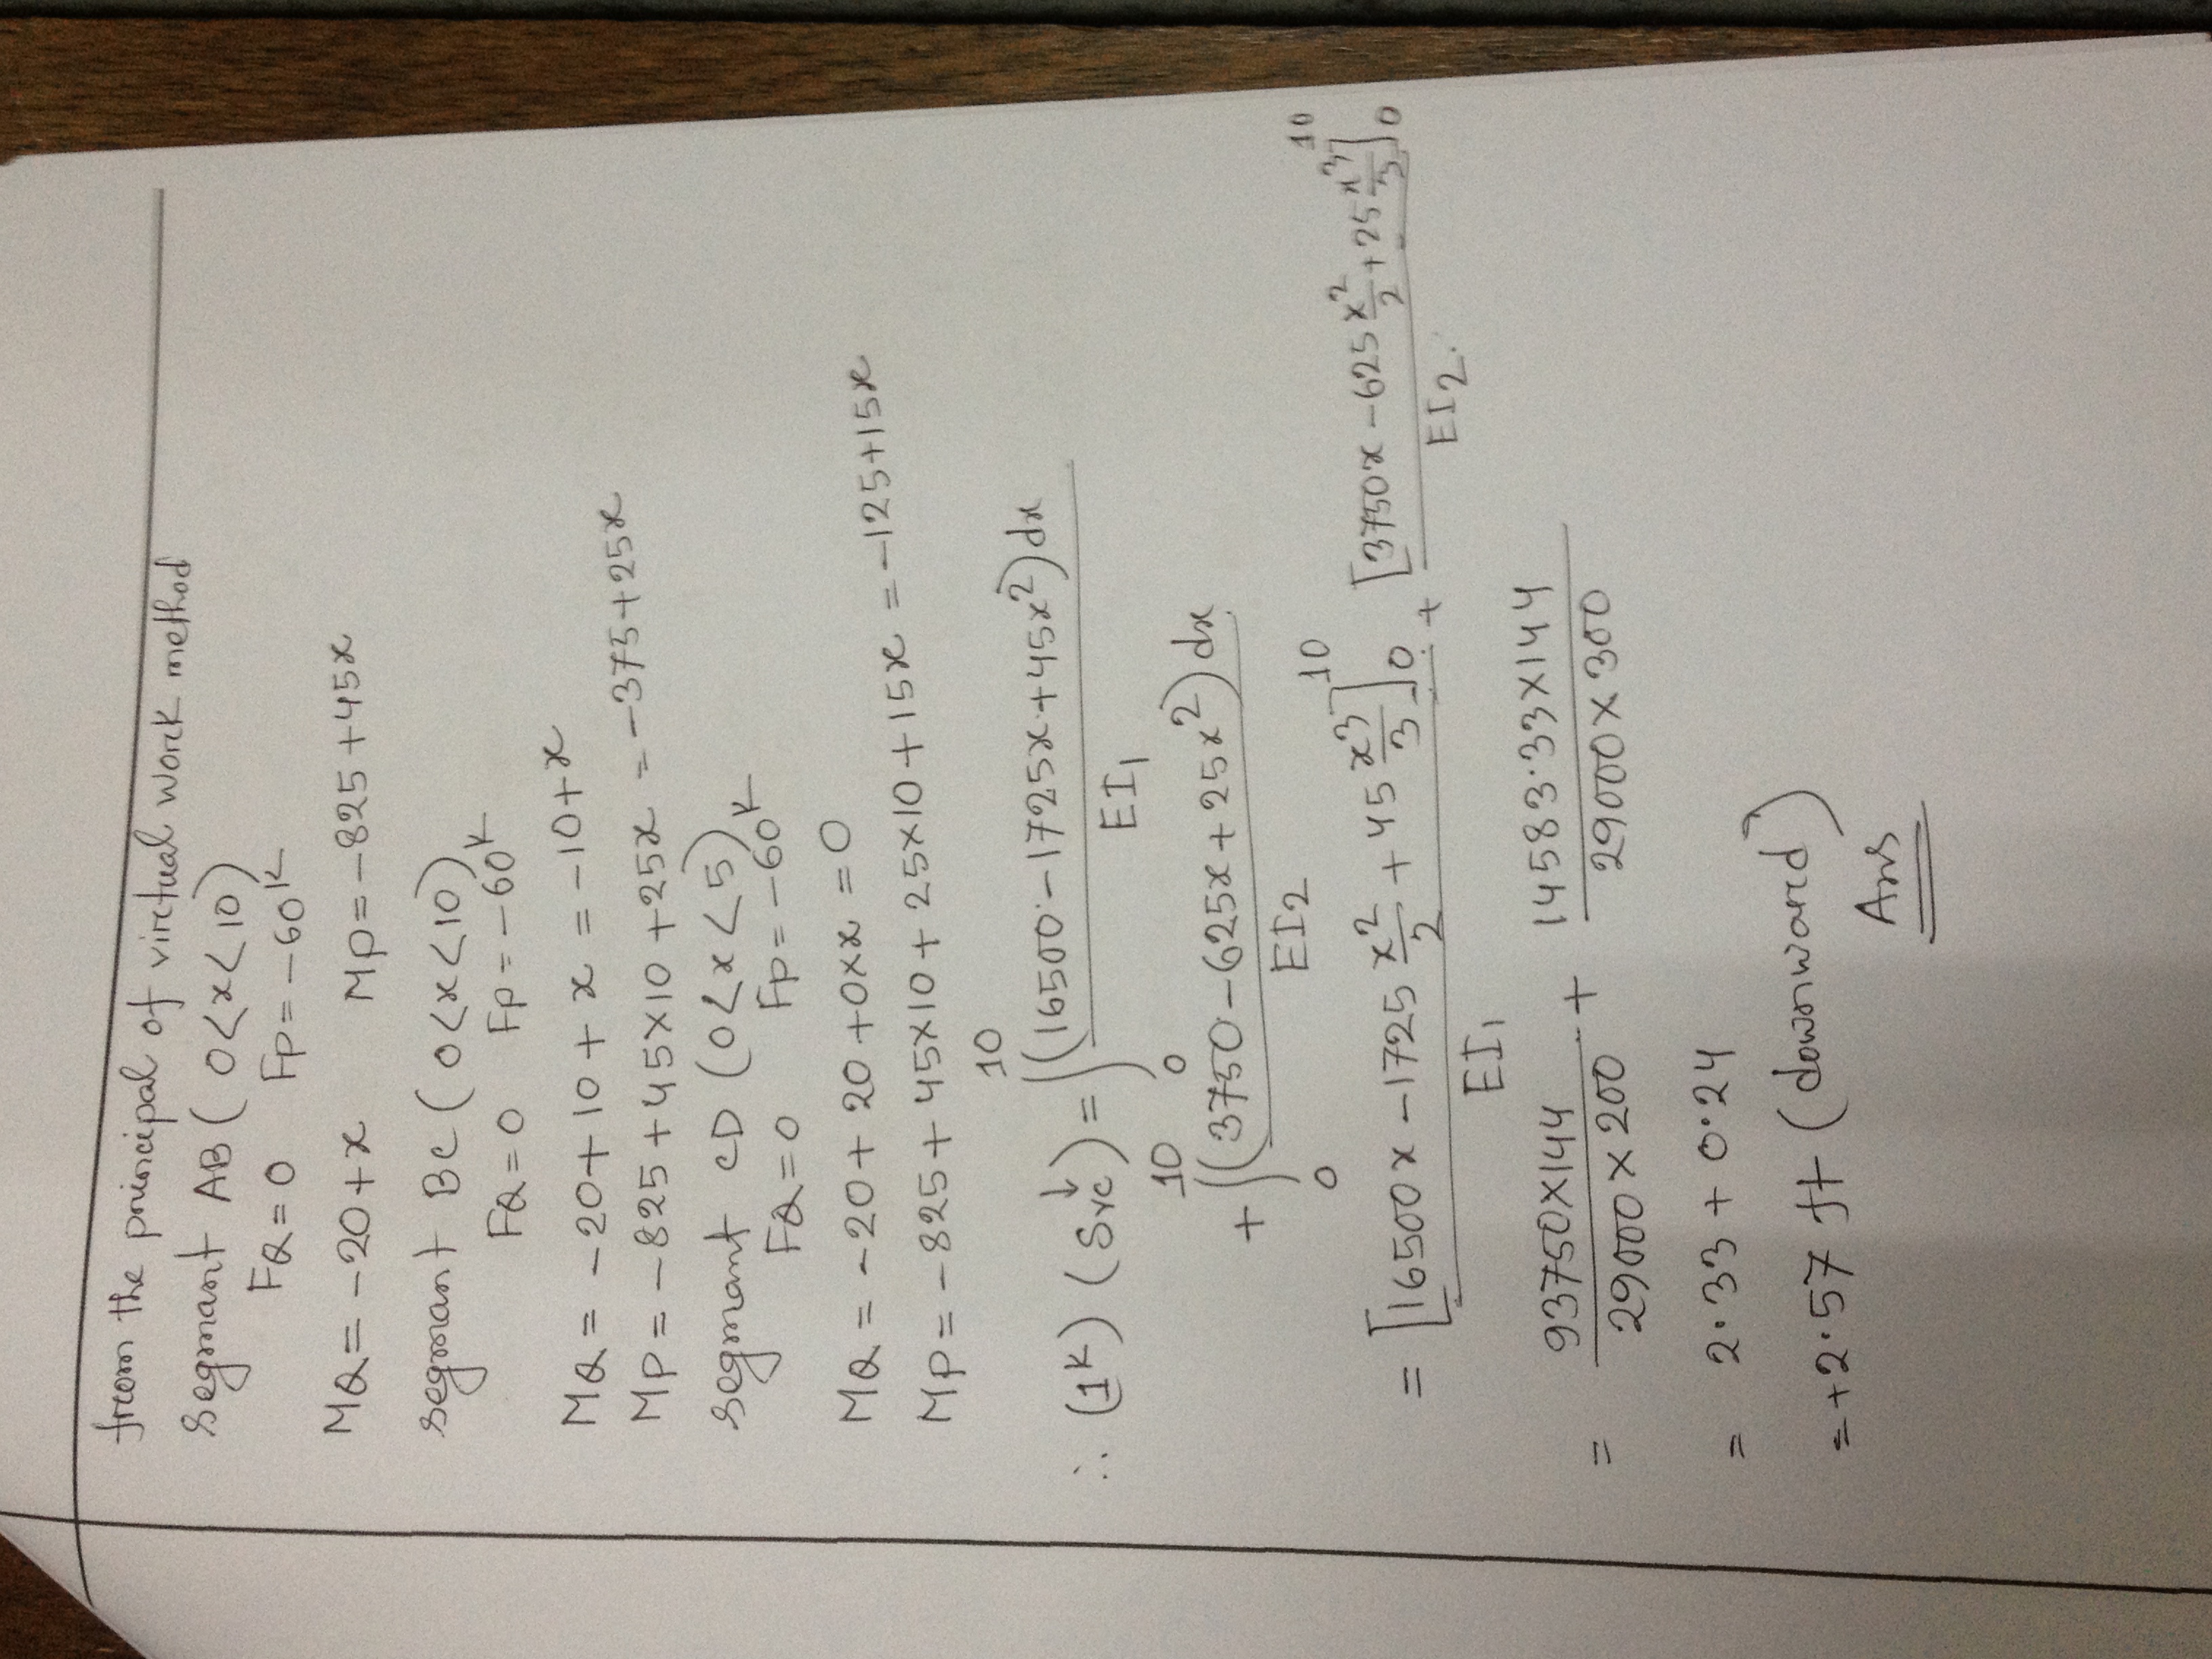 from the principal of virtual work method
Segmant AB ( 0<x<10)
FQ=0 Fp=-60K
MQ=-20+x Mp=-825+45x
Segmant BC ( 0<x<10)
FQ=0 Fp=-60K
MQ = -20+10+x = -10+x
Mp=-825+45x10+25x = -375+25x
segmant CD (0<x<5)
FQ=0 Fp=-60K
MQ = -20+20+0xx=0
Mp=-825+45x10+25x10+15x = -125+15x
∴ (1K) (δrc↓) = ∫₀¹⁰ (16500-1725x+45x²)dx / EI₁
+ ∫₀¹⁰ (3750-625x+25x²)dx / EI₂
= [16500x-1725 x²/2 + 45 x³/3]₀¹⁰ / EI₁ + [3750x-625 x²/2 + 25 x³/3]₀¹⁰ / EI₂.
= 93750x144 / 29000x200 + 14583.33x144 / 29000x300
= 2.33 + 0.24
= +2.57 ft (downward)
Ans